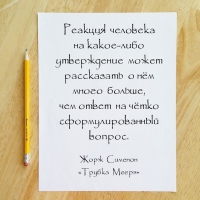 Реакция человека
на какое-либо
утверждение может
рассказать о нём
много больше,
чем ответ на чётко
сформулированный
вопрос.
Жорж Сименон
«Трубка Мегрэ»